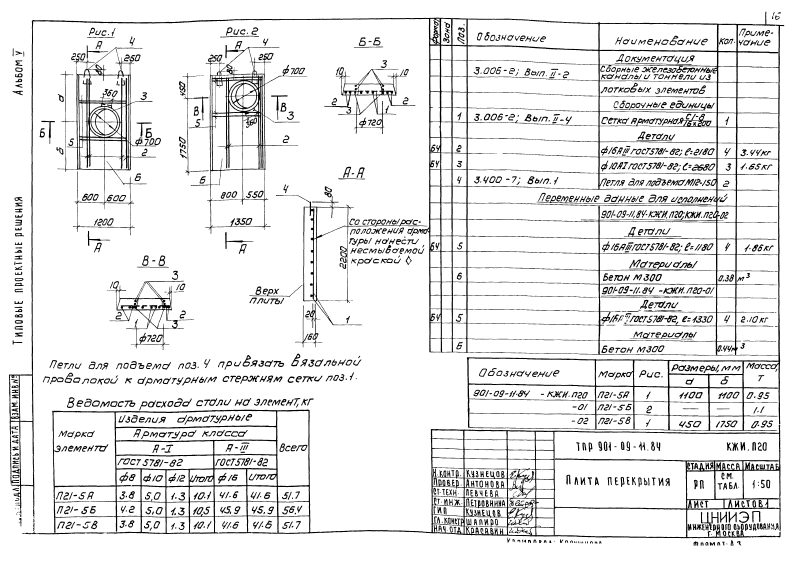 16
Альбом V
Типовые проектные решения
Рис.1
А
4
250
250
360
3
а
Б
Б
ф700
5
2
б
Б
600 600
1200
А
Рис. 2
А
4
250
250
ф700
450
В
В
3
360
5
1750
2
Б
800
550
1350
А
Б-Б
3
10
10
2
2
ф720
А-А
4
80
Со стороны рас-
положения арма-
туры нанести
несмываемой
краской
2200
Верх
плиты
20
160
1
В-В
3
10
10
2
2
3
ф720
Петли для подъема поз. 4 привязать вязальной
проволокой к арматурным стержням сетки поз.1.
Ведомость расхода стали на элемент, кг
Марка элемента
Изделия арматурные
Всего
Арматура класса
А-I
А-III
ГОСТ 5781-82
ГОСТ 5781-82
ф8 ф10 ф12 Итого ф16 Итого
П21-5А 3.8 5,0 1.3 10.1 41.6 41.6 51.7
П21-5Б 4.2 5,0 1.3 10,5 45.9 45.9 56,4
П21-5В 3.8 5,0 1.3 10.1 41.6 41.6 51.7
Формат Зона Поз. Обозначение Наименование Кол. Приме-чание
Документация
3.006-2; Вып. II-2 Сборные железобетонные
каналы и тоннели из
лотковых элементов
Сборочные единицы
1 3.006-2; Вып. II-4 Сетка арматурная 1
Детали
БЧ 2 ф16АIII ГОСТ 5781-82; ℓ=2180 4 3.44кг
БЧ 3 ф10АI ГОСТ 5781-82; ℓ=2680 3 1.65кг
4 3.400-7; Вып.1 Петля для подъема М12-150 2
Переменные данные для исполнений
901-09-11.84-КЖИ.П20; КЖИ.П20-02
Детали
БЧ 5 ф16АIII ГОСТ 5781-82; ℓ=1180 4 1.86кг
Материалы
6 Бетон М300 0.38 м³
901-09-11.84 -КЖИ.П20-01
Детали
БЧ 5 ф16АIII ГОСТ 5781-82, ℓ=1330 4 2.10кг
Материалы
Б Бетон М300 0.44м³
Обозначение Марка Рис. Размеры, мм Масса, т
а б
901-09-11-84 -КЖИ.П20 П21-5А 1 1100 1100 0.95
-01 П21-5Б 2 — — 1.1
-02 П21-5В 1 450 1750 0.95
ТПР 901-09-11.84 КЖИ.П20
Н.контр. Кузнецов
Провер. Антонова
Ст.техн. Певчева
Ст. инж. Петровнина
ГИП Кузнецов
Гл. констр Шапиро
Нач. отд Красавин
Плита перекрытия
Стадия Масса Масштаб
РП См. табл. 1:50
Лист Листов 1
ЦНИИЭП
инженерного оборудования
г. Москва
Формат А3
Подпись и дата
Взам. инв.№